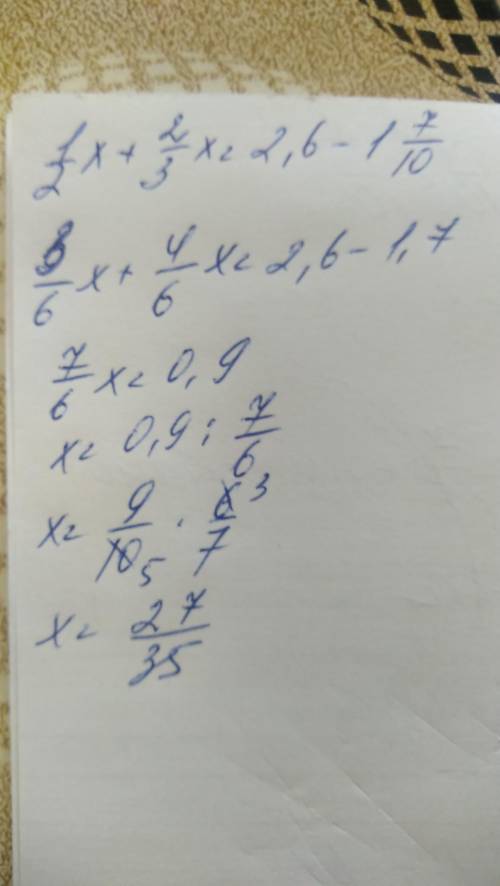 1/2 x + 2/3 x = 2,6 - 1 7/10
3/6 x + 4/6 x = 2,6 - 1,7
7/6 x = 0,9
x = 0,9 : 7/6
x = 9/10 5 · 6/7 3
x = 27/35